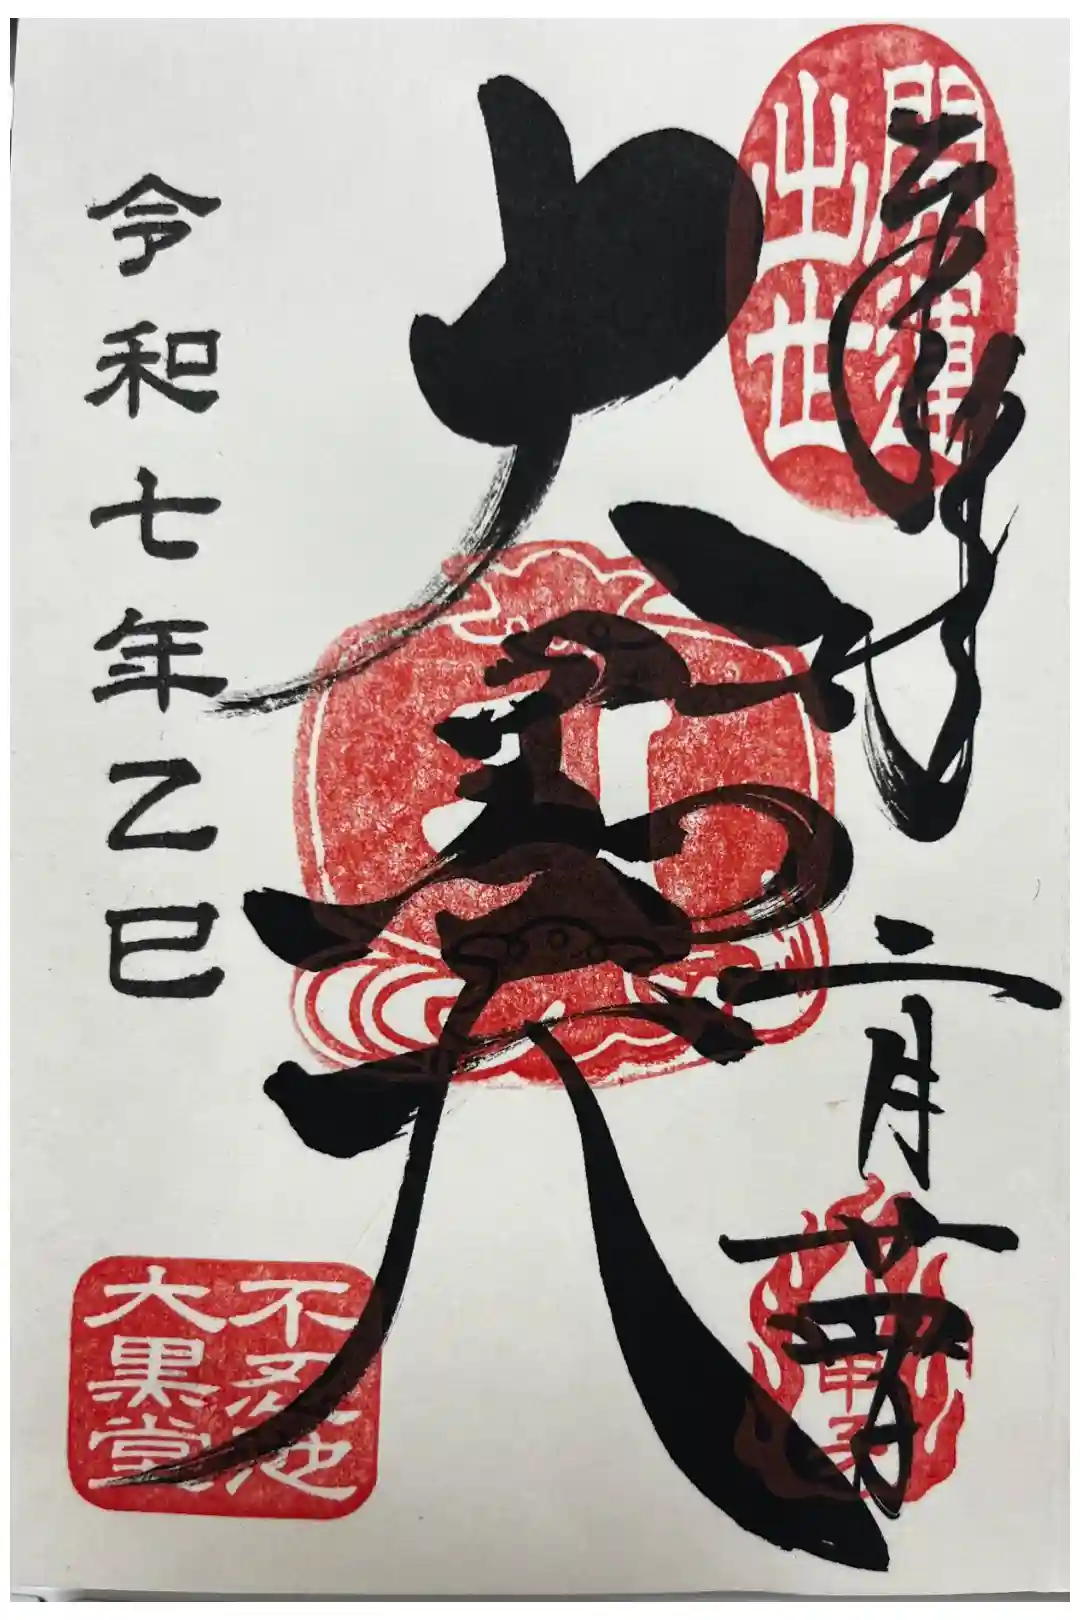 開運
出世
奉拝
二月廿四日
甲子
大黒天
令和七年乙巳
不忍池
大黒堂